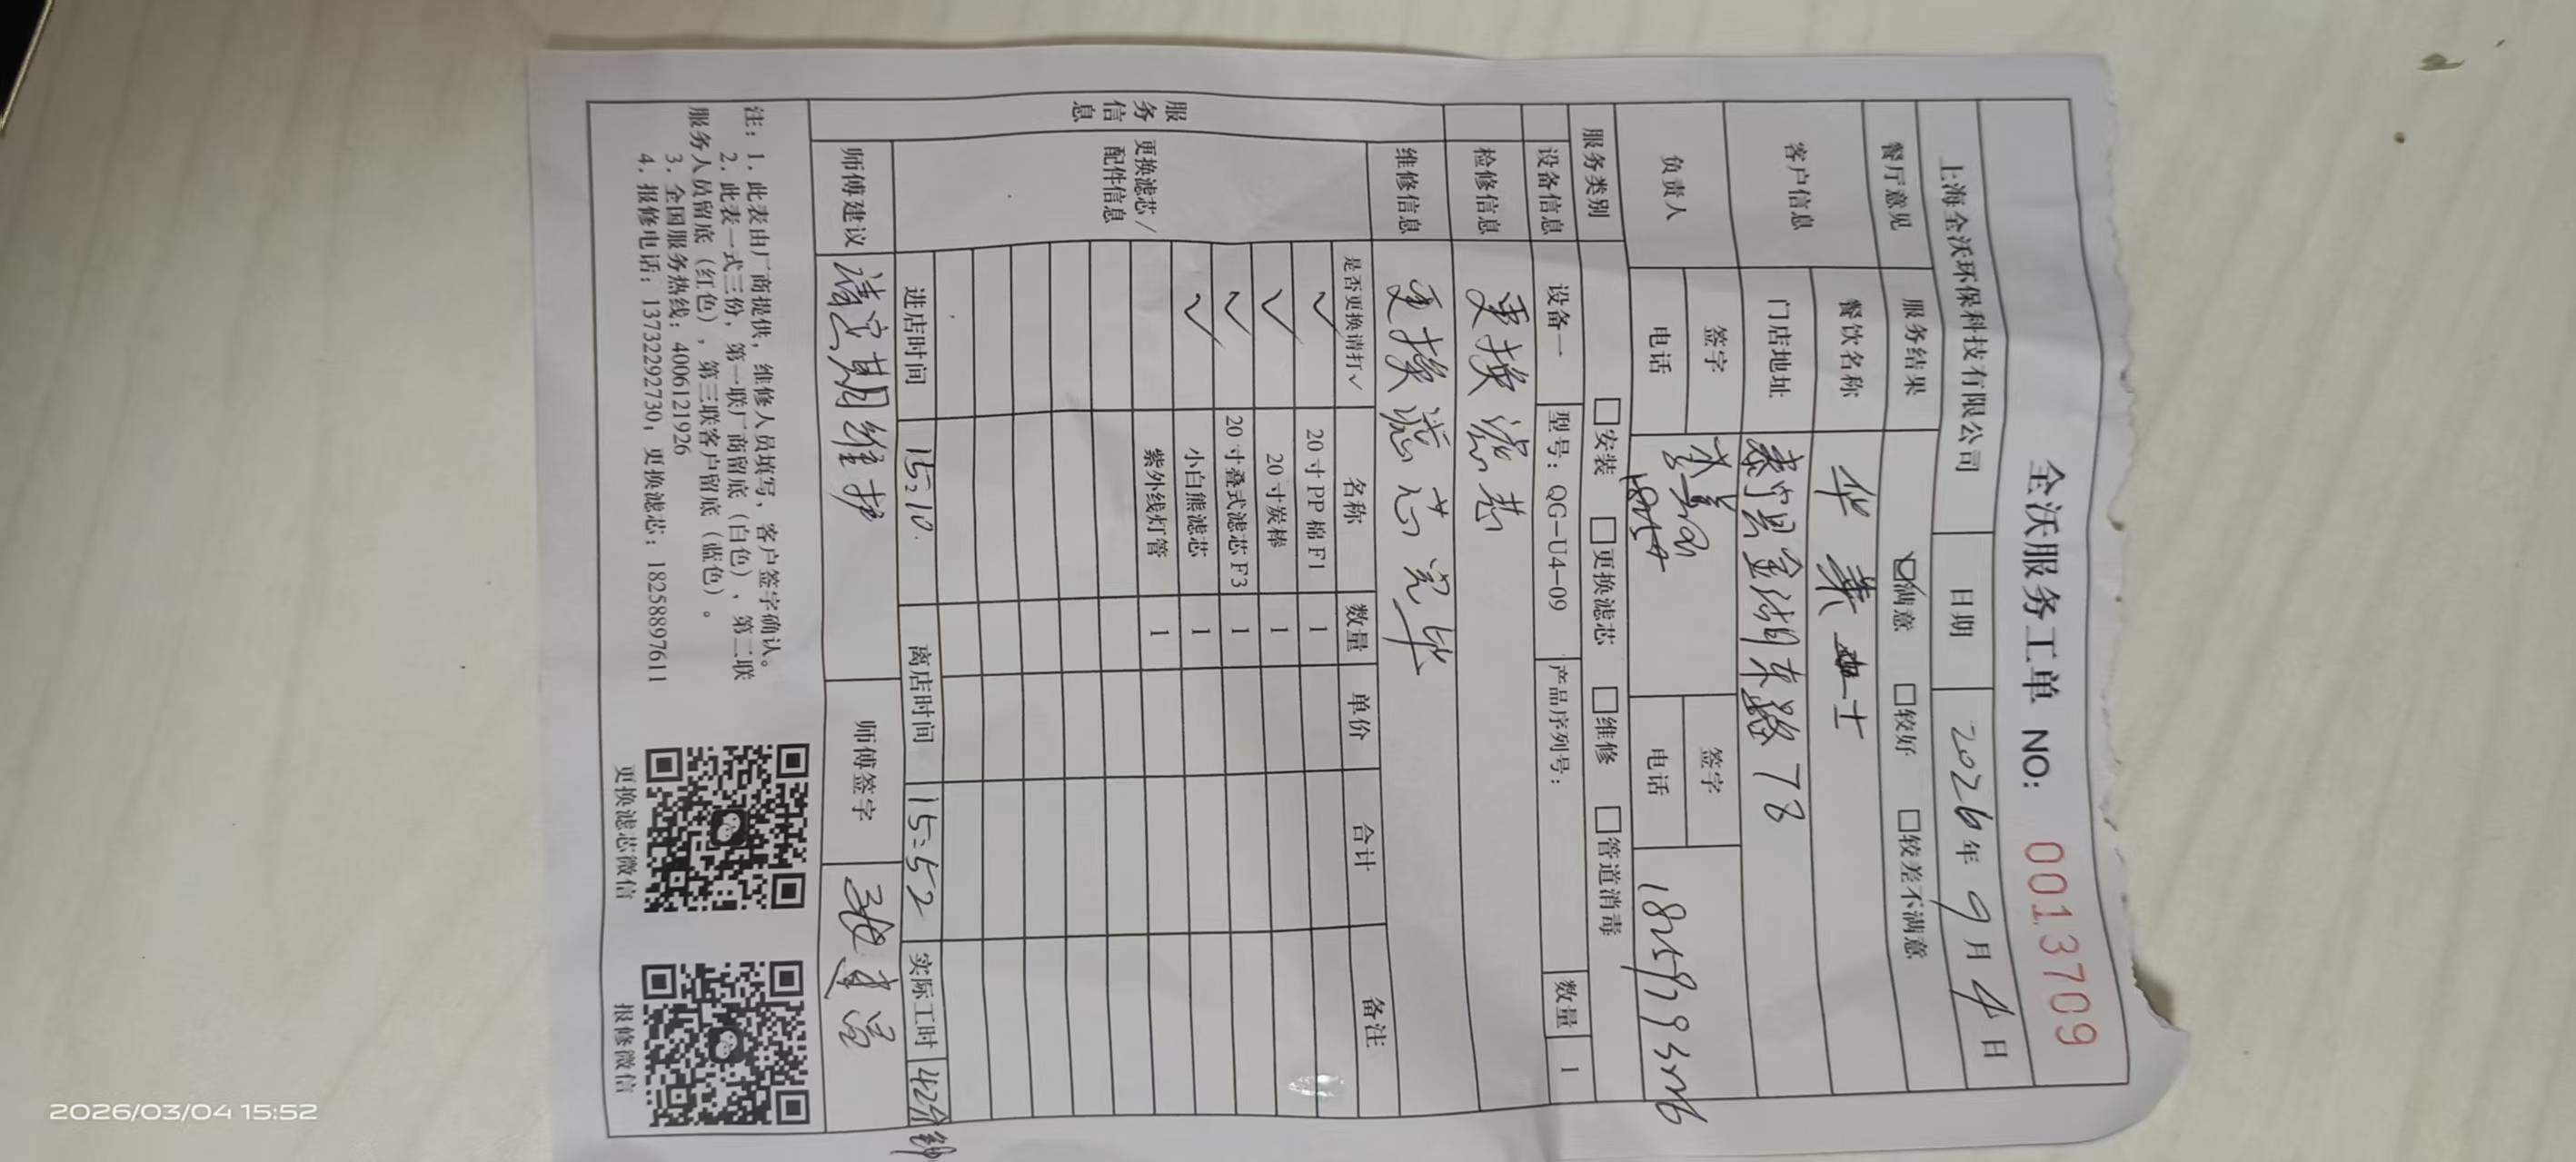 全沃服务工单 NO: 0013709
上海全沃环保科技有限公司 日期 2026年9月4日
餐厅意见 服务结果 ☑满意 □较好 □较差不满意
客户信息 餐饮名称 华莱士
门店地址 泰宁县金湖东路78
负责人 签字 签字
电话 电话
服务类别 □安装 □更换滤芯 □维修 □管道消毒
设备信息 设备一 型号: QG-U4-09 产品序列号: 数量 1
检修信息 更换滤芯
维修信息 更换滤芯完毕
服务信息
更换滤芯/配件信息
是否更换请打✓ 名称 数量 单价 合计 备注
✓ 20寸PP棉F1 1
✓ 20寸炭棒 1
✓ 20寸叠式滤芯F3 1
✓ 小白熊滤芯 1
紫外线灯管 1
进店时间 15:10 离店时间 15:52 实际工时 42分钟
师傅建议 请定期维护 师傅签字
注: 1. 此表由厂商提供, 维修人员填写, 客户签字确认。
2. 此表一式三份, 第一联厂商留底 (白色), 第二联
服务人员留底 (红色), 第三联客户留底 (蓝色)。
3. 全国服务热线: 4006121926
4. 报修电话: 13732292730, 更换滤芯: 18258897611
更换滤芯微信 报修微信
2026/03/04 15:52